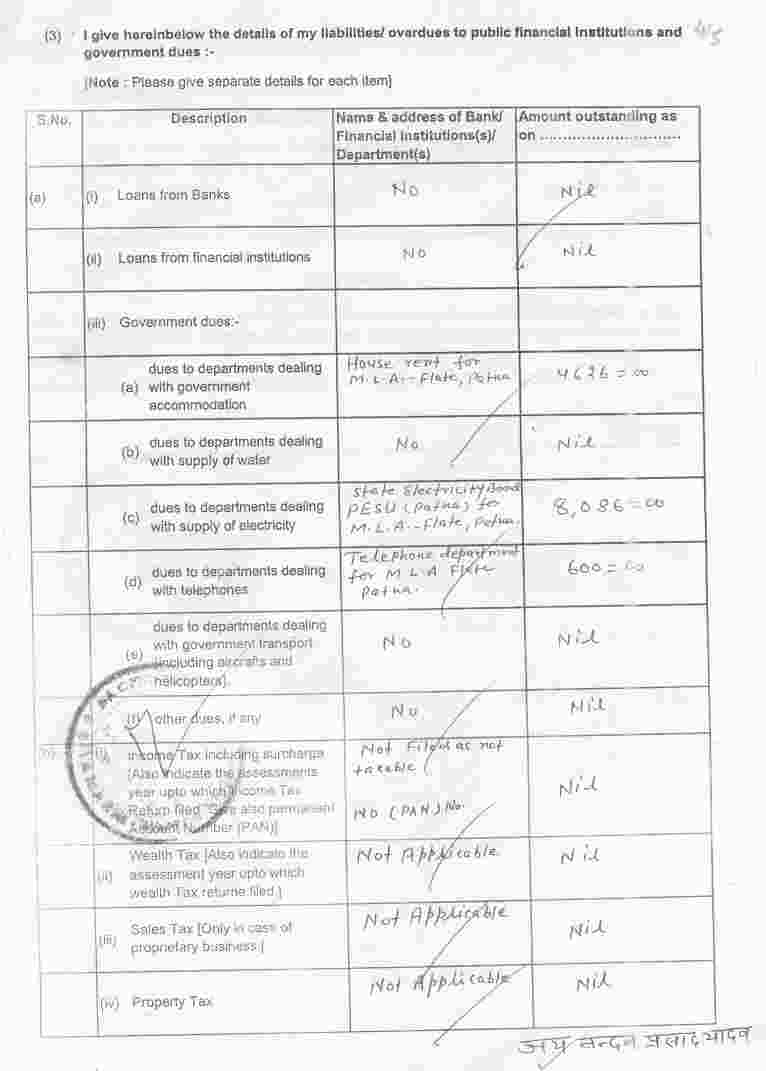 (3) I give hereinbelow the details of my liabilities/ overdues to public financial institutions and
government dues :-
[Note : Please give separate details for each item]
S.No. Description Name & address of Bank/ Amount outstanding as
Financial Institutions(s)/ on ..............................
Department(s)
(a) (i) Loans from Banks No Nil
(ii) Loans from financial institutions No Nil
(iii) Government dues:-
dues to departments dealing House rent for
(a) with government M.L.A.-Flate, Patna 4626=00
accommodation
(b) dues to departments dealing No Nil
with supply of water
State Electricity Board
(c) dues to departments dealing PESU (Patna) for 8,086=00
with supply of electricity M.L.A.-Flate, Patna.
Telephone department
(d) dues to departments dealing for M L A Flate 600=00
with telephones Patna.
dues to departments dealing
(e) with government transport No Nil
[including aircrafts and
helicopters].
(f) other dues, if any No Nil
(b) (i) Income Tax including surcharge Not Filed as not
[Also indicate the assessments taxable
year upto which Income Tax Nil
Return filed. Give also permanent NO (PAN) No.
Account Number (PAN)]
Wealth Tax [Also indicate the Not Applicable Nil
(ii) assessment year upto which
wealth Tax returne filed.]
(iii) Sales Tax [Only in case of Not Applicable Nil
proprietary business.]
(iv) Property Tax Not Applicable Nil
जय नन्दन प्रसाद यादव